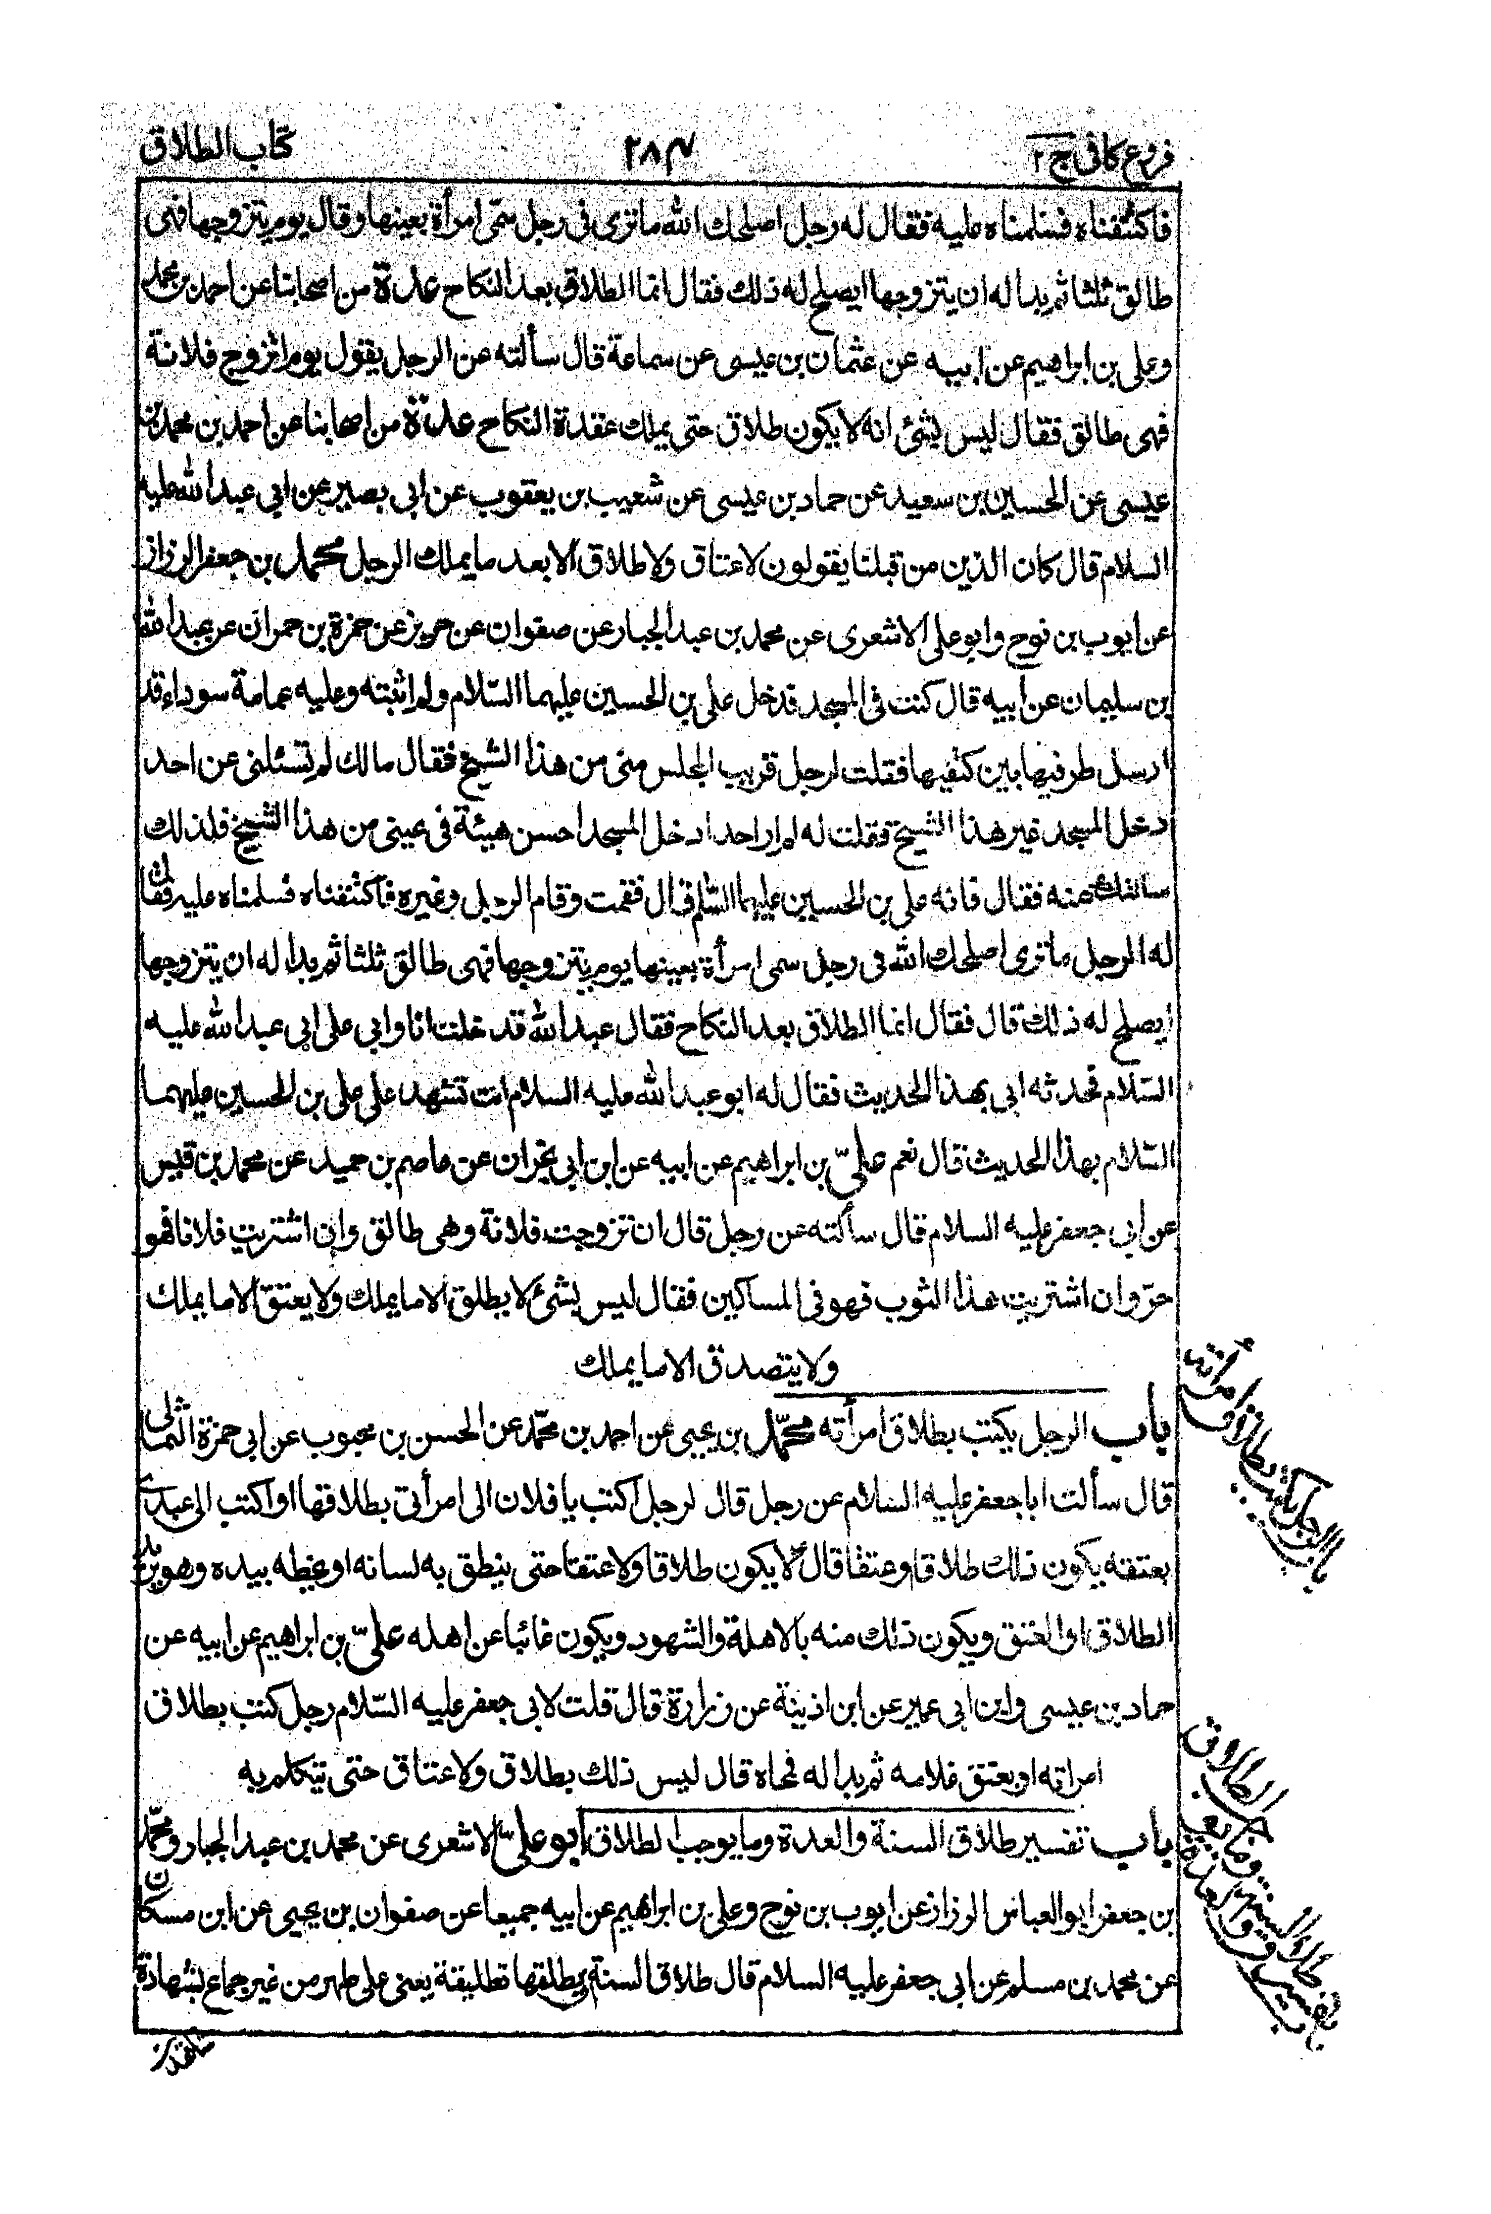 فروع كافى ج ٢
٢٨٤
كتاب الطلاق
فاكتنفناه فسلمناه عليه فقال له رجل اصلحك الله ماترى فى رجل سمّى امرأة بعينها وقال يوم يتزوجها فهى
طالق ثلثا ثم بدا له ان يتزوجها ايصلح له ذلك فقال انما الطلاق بعد النكاح عدة من اصحابنا عن احمد بن محمد
وعلى بن ابراهيم عن ابيه عن عثمان بن عيسى عن سماعة قال سألته عن الرجل يقول يوم اتزوج فلانة
فهى طالق فقال ليس بشئ انه لا يكون طلاق حتى يملك عقدة النكاح عدة من اصحابنا عن احمد بن محمد بن
عيسى عن الحسين بن سعيد عن حماد بن عيسى عن شعيب بن يعقوب عن ابى بصير عن ابى عبد الله عليه
السلام قال كان الذين من قبلنا يقولون لا عتاق ولا طلاق الا بعد مايملك الرجل محمد بن جعفر الرزاز
عن ايوب بن نوح وابو على الاشعرى عن محمد بن عبد الجبار عن صفوان عن حريز عن حمزة بن حمران عن عبد الله
بن سليمان عن أبيه قال كنت فى المسجد فدخل على بن الحسين عليهما السّلام ولم اثبته وعليه عمامة سوداء قد
ارسل طرفيها بين كتفيها فقلت لرجل قريب المجلس منى من هذا الشيخ فقال مالك لم تسئلنى عن احد
دخل المسجد غير هذا الشيخ فقلت له لم ار احدا دخل المسجد احسن هيئة فى عينى من هذا الشيخ فلذلك
سالتك عنه فقال فانه على بن الحسين عليهما السّلم قال فقمت وقام الرجل وغيره فاكتنفناه فسلمناه عليه فقال
له الرجل ماترى اصلحك الله فى رجل سمى امرأة بعينها يوم يتزوجها فهى طالق ثلثا ثم بدا له ان يتزوجها
أيصلح له ذلك قال فقال انما الطلاق بعد النكاح فقال عبد الله فدخلت انا وابى على ابى عبد الله عليه
السّلام فحدثه ابى بهذا الحديث فقال له ابو عبد الله عليه السلام انت تشهد على على بن الحسين عليهما
السّلام بهذا الحديث قال نعم علىّ بن ابراهيم عن ابيه عن ابن ابى نجران عن عاصم بن حميد عن محمد بن قيس
عن ابى جعفر عليه السلام قال سألته عن رجل قال ان تزوجت فلانة وهى طالق وان اشتريت فلانا فهو
حرّ وان اشتريت هذا الثوب فهو فى المساكين فقال ليس بشئ لا يطلق الا ما يملك ولا يعتق الا ما يملك
ولا يتصدق الا ما يملك
باب الرجل يكتب بطلاق امرأته محمّد بن يحيى عن احمد بن محمّد عن الحسن بن محبوب عن ابى حمزة الثمالى
قال سألت ابا جعفر عليه السلام عن رجل قال لرجل اكتب يا فلان الى امرأتى بطلاقها او اكتب الى عبدى
بعتقه يكون ذلك طلاقا وعتقا قال لا يكون طلاقا ولا عتقا حتى ينطق به لسانه او يخطه بيده وهو يريد
الطلاق او العتق ويكون ذلك منه بالاهلة والشهود ويكون غائبا عن اهله علىّ بن ابراهيم عن ابيه عن
حماد بن عيسى وابن ابى عمير عن ابن اذينة عن زرارة قال قلت لابى جعفر عليه السّلام رجل كتب بطلاق
امراته او بعتق غلامه ثم بدا له فمحاه قال ليس ذلك بطلاق ولا عتاق حتى يتكلم به
باب تفسير طلاق السنة والعدة وما يوجب الطلاق أبو علىّ الاشعرى عن محمد بن عبد الجبار ومحمّد
بن جعفر ابو العباس الرزاز عن ايوب بن نوح وعلى بن ابراهيم عن ابيه جميعا عن صفوان بن يحيى عن ابن مسكان
عن محمد بن مسلم عن ابى جعفر عليه السلام قال طلاق السنة يطلقها تطليقة يعنى على طهر من غير جماع بشهادة
شاهدين
باب الرجل يكتب بطلاق امرأته
باب تفسير طلاق السنة والعدة وما يوجب الطلاق